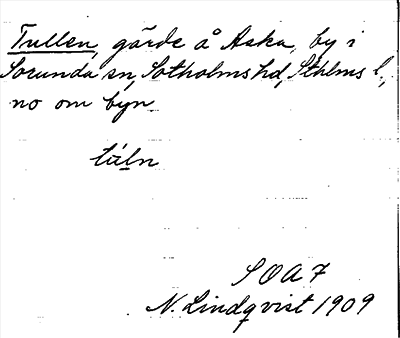 Tullen, gärde å Aska, by i
Sorunda sn, Sotholms hd, Sthlms l.,
no om byn.
tú̀ln
SOA7
N. Lindqvist 1909